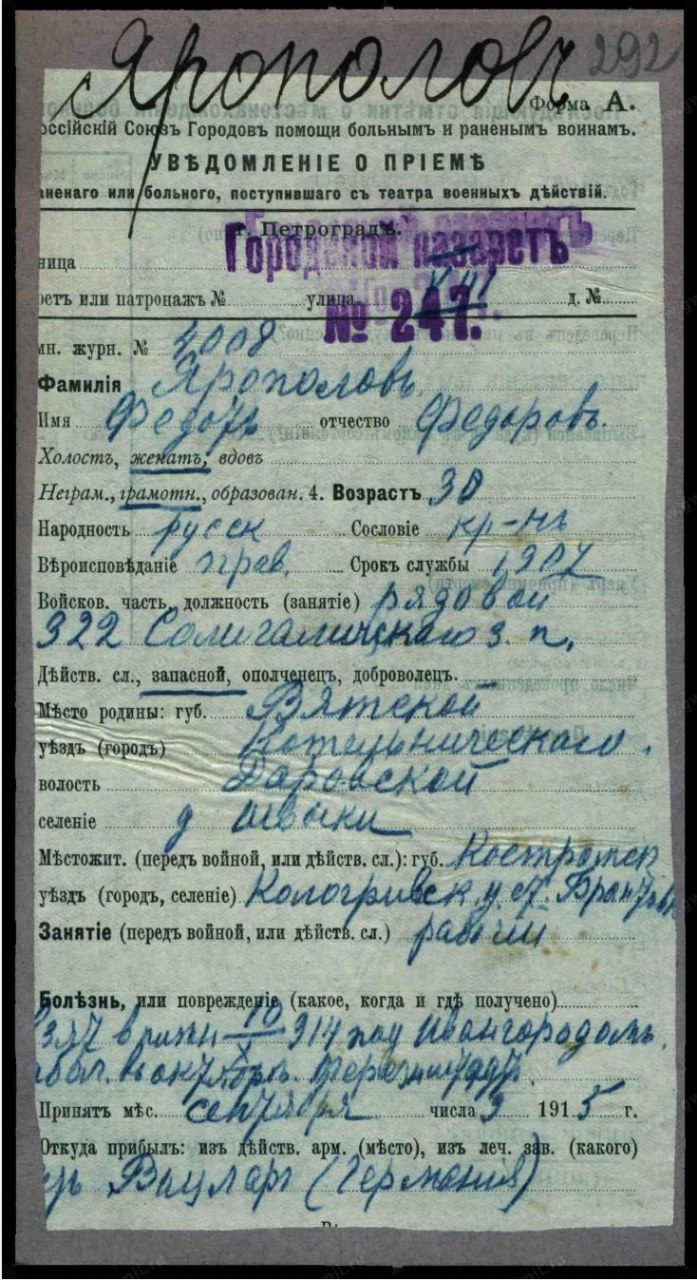 Ярополовъ 292
Форма А.
оссійскій Союзъ Городовъ помощи больнымъ и раненымъ воинамъ.
УВѢДОМЛЕНІЕ О ПРІЕМѢ
аненаго или больного, поступившаго съ театра военныхъ дѣйствій.
г. Петроградъ.
Городской лазаретъ
ница
ретъ или патронажъ № улица д. №
№ 247.
ин. журн. № 4008
Фамилія Ярополовъ
Имя Федоръ отчество Федоровъ.
Холостъ, женатъ, вдовъ
Неграм., грамотн., образован. 4. Возрастъ 30
Народность русск Сословіе кр-нъ
Вѣроисповѣданіе прав. Срокъ службы 1907
Войсков. часть, должность (занятіе) рядовой
322 Солигаличскаго з. п.
Дѣйств. сл., запасной, ополченецъ, доброволецъ.
Мѣсто родины: губ. Вятской
уѣздъ (городъ) Котельническаго.
волость Даровской
селеніе д
Мѣстожит. (передъ войной, или дѣйств. сл.): губ. Костромск
уѣздъ (городъ, селеніе) Кологривск. у.
Занятіе (передъ войной, или дѣйств. сл.) рабочій
Болѣзнь, или поврежденіе (какое, когда и гдѣ получено)
10/X 914 под Ивангородомъ.
Принятъ мѣс. сентября числа 3 1915 г.
Откуда прибылъ: изъ дѣйств. арм. (мѣсто), изъ леч. зав. (какого)
(Германія)